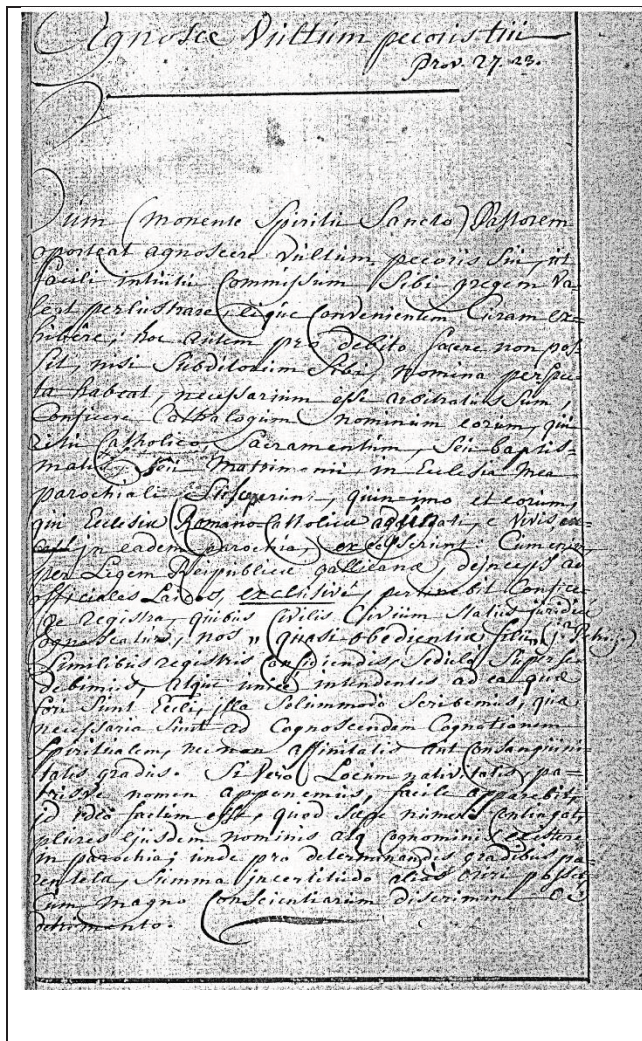 Agnosce Vultum pecoris tui
Prov. 27. 23.
Dum (monente Spiritu Sancto) Pastorem
oporteat agnoscere vultum pecoris sui, ut
facili intuitu Commissum Sibi gregem va-
leat perlustrare, eique Convenientem Curam ex-
hibere, hoc autem pro debito facere non pos-
sit, nisi Subditorum Sibi nomina perspec-
ta habeat, necessarium esse arbitratus Sum,
Conficere Cathalogum nominum eorum, qui
ritu Catholico, Sacramentum, Seu baptis-
matis, Seu Matrimonii, in Ecclesia mea
parochiali Susceperint, quin-imo et eorum,
qui Ecclesiae Romano-Catholicae e vivis
in eadem parochia, Cum enim
per Legem Reipublicae gallicanae, deinceps ad
officiales Laicos, exclusivé, pertinebit Confice-
re registra, quibus Civilis Civium Status juridicè
cognoscatur, nos „ quasi obedientiae filii (1ª Petri j.)
Similibus registris Conficiendis, Sedulo Superse-
debimus, atque unicè intendentes ad ea quae
fori Sunt Eccli, illa Solummodo Scribemus, quae
necessaria Sunt ad Cognoscendam Cognationem
Spiritualem, nec non affinitatis aut Consanguini-
tatis gradus. Si vero Locum nativitatis, pa-
trisve nomen apponemus, facile apparebit,
id ideo factum esse, quod Saepe numero Contingat,
plures ejusdem nominis atq Cognominis existere
in parochia; unde pro determinandis gradibus pa-
rentela, Summa incertitudo alias oriri posset
Cum magno Conscientiarum discrimine
detrimento.